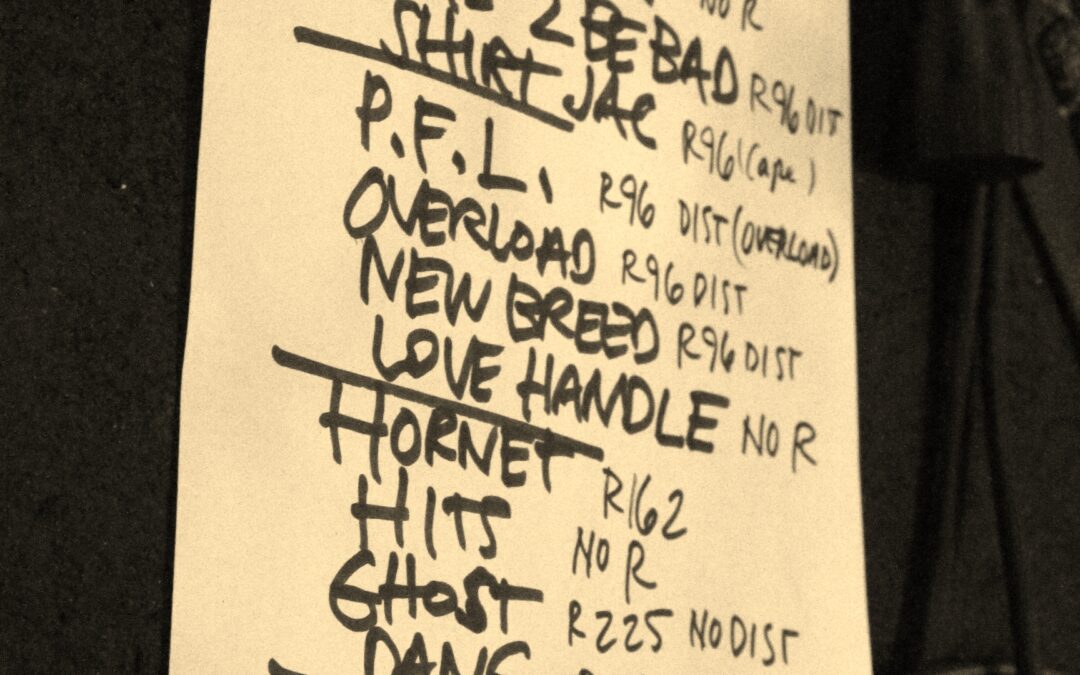 NO R
2 BE BAD R96 DIST
SHIRT JAC R96 (Cape)
P.F.L. R96 DIST (OVERLOAD)
OVERLOAD R96 DIST
NEW BREED R96 DIST
LOVE HANDLE NO R
HORNET R162
HITS NO R
GHOST R225 NO DIST